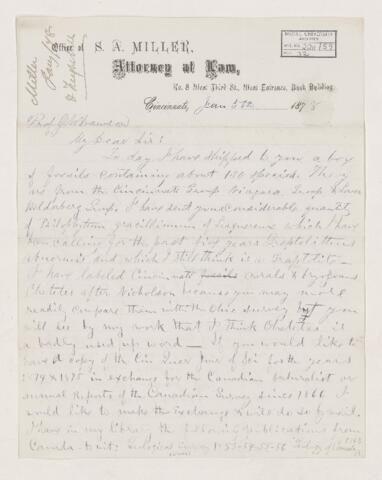 Office of S. A. MILLER,
Attorney at Law,
No. 8 West Third St., West Entrance, Bank Building
Cincinnati, Jan 5th 1878
Miller
Jany 5/78
McGILL UNIVERSITY
ARCHIVES
ACC. NO.
REF.
Prof J W Dawson
My Dear Sir:
To day I have shipped to you a box
of fossils containing about 150 species. They
are from the Cincinnati Group Niagara Group & Lower
Helderberg Group. I have sent you considerable quantity
of Psilophytum gracillimum of Lesquereux which I have
been calling for the past five years Graptolithus
abnormis and which I still think is a Graptolite —
I have labeled Cincinnati fossils corals & bryozoans
Chetetes after Nicholson because you may more
readily compare them with the Ohio Survey but you
will see by my work that I think Chetetes is
a badly used up word — If you would like to
have a copy of the Cin Quar Jour of Sci for the years
1874 & 1875 in exchange for the Canadian Naturalist or
annual Reports of the Canadian Survey since 1866 I
would like to make the exchange & will do so by mail.
I have in my library the following publications from
Canada to wit; Geological Survey 1853-54-55-56 Geology of Canada 1863